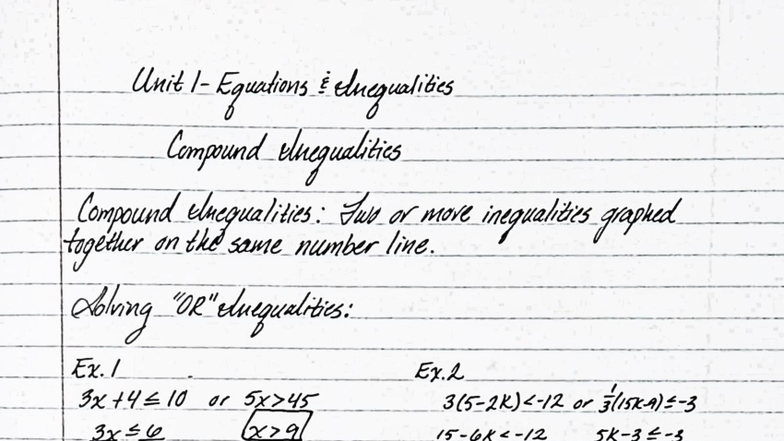 Unit 1 - Equations & Inequalities
Compound Inequalities
Compound Inequalities: Two or more inequalities graphed
together on the same number line.
Solving "OR" Inequalities:
Ex. 1
3x + 4 ≤ 10 or 5x > 45
3x ≤ 6
x > 9
Ex. 2
3(5-2k) < -12 or 1/3(15k-9) ≤ -3
15-6k < -12
5k-3 ≤ -3